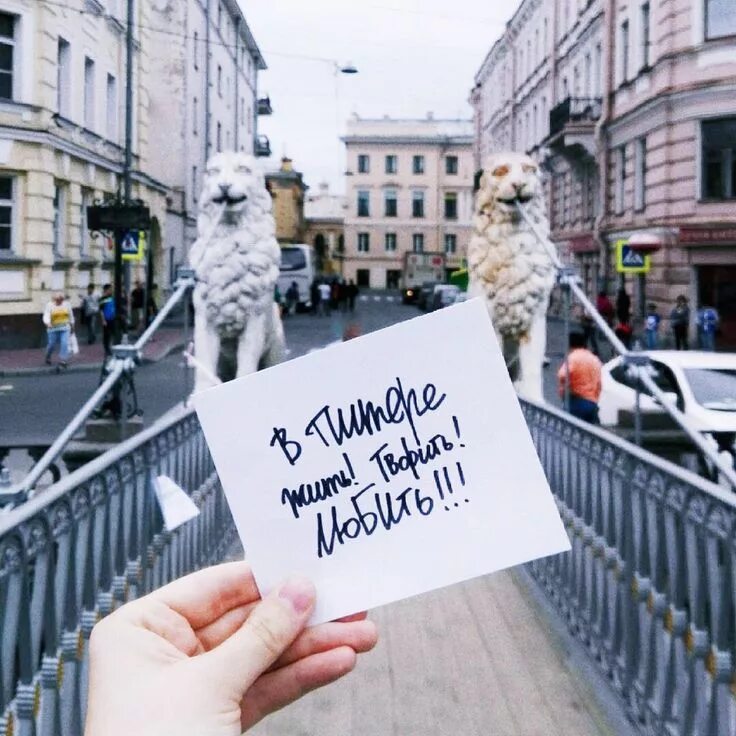 В ПИТЕРЕ
жить! Творить!
ЛЮБИТЬ!!!